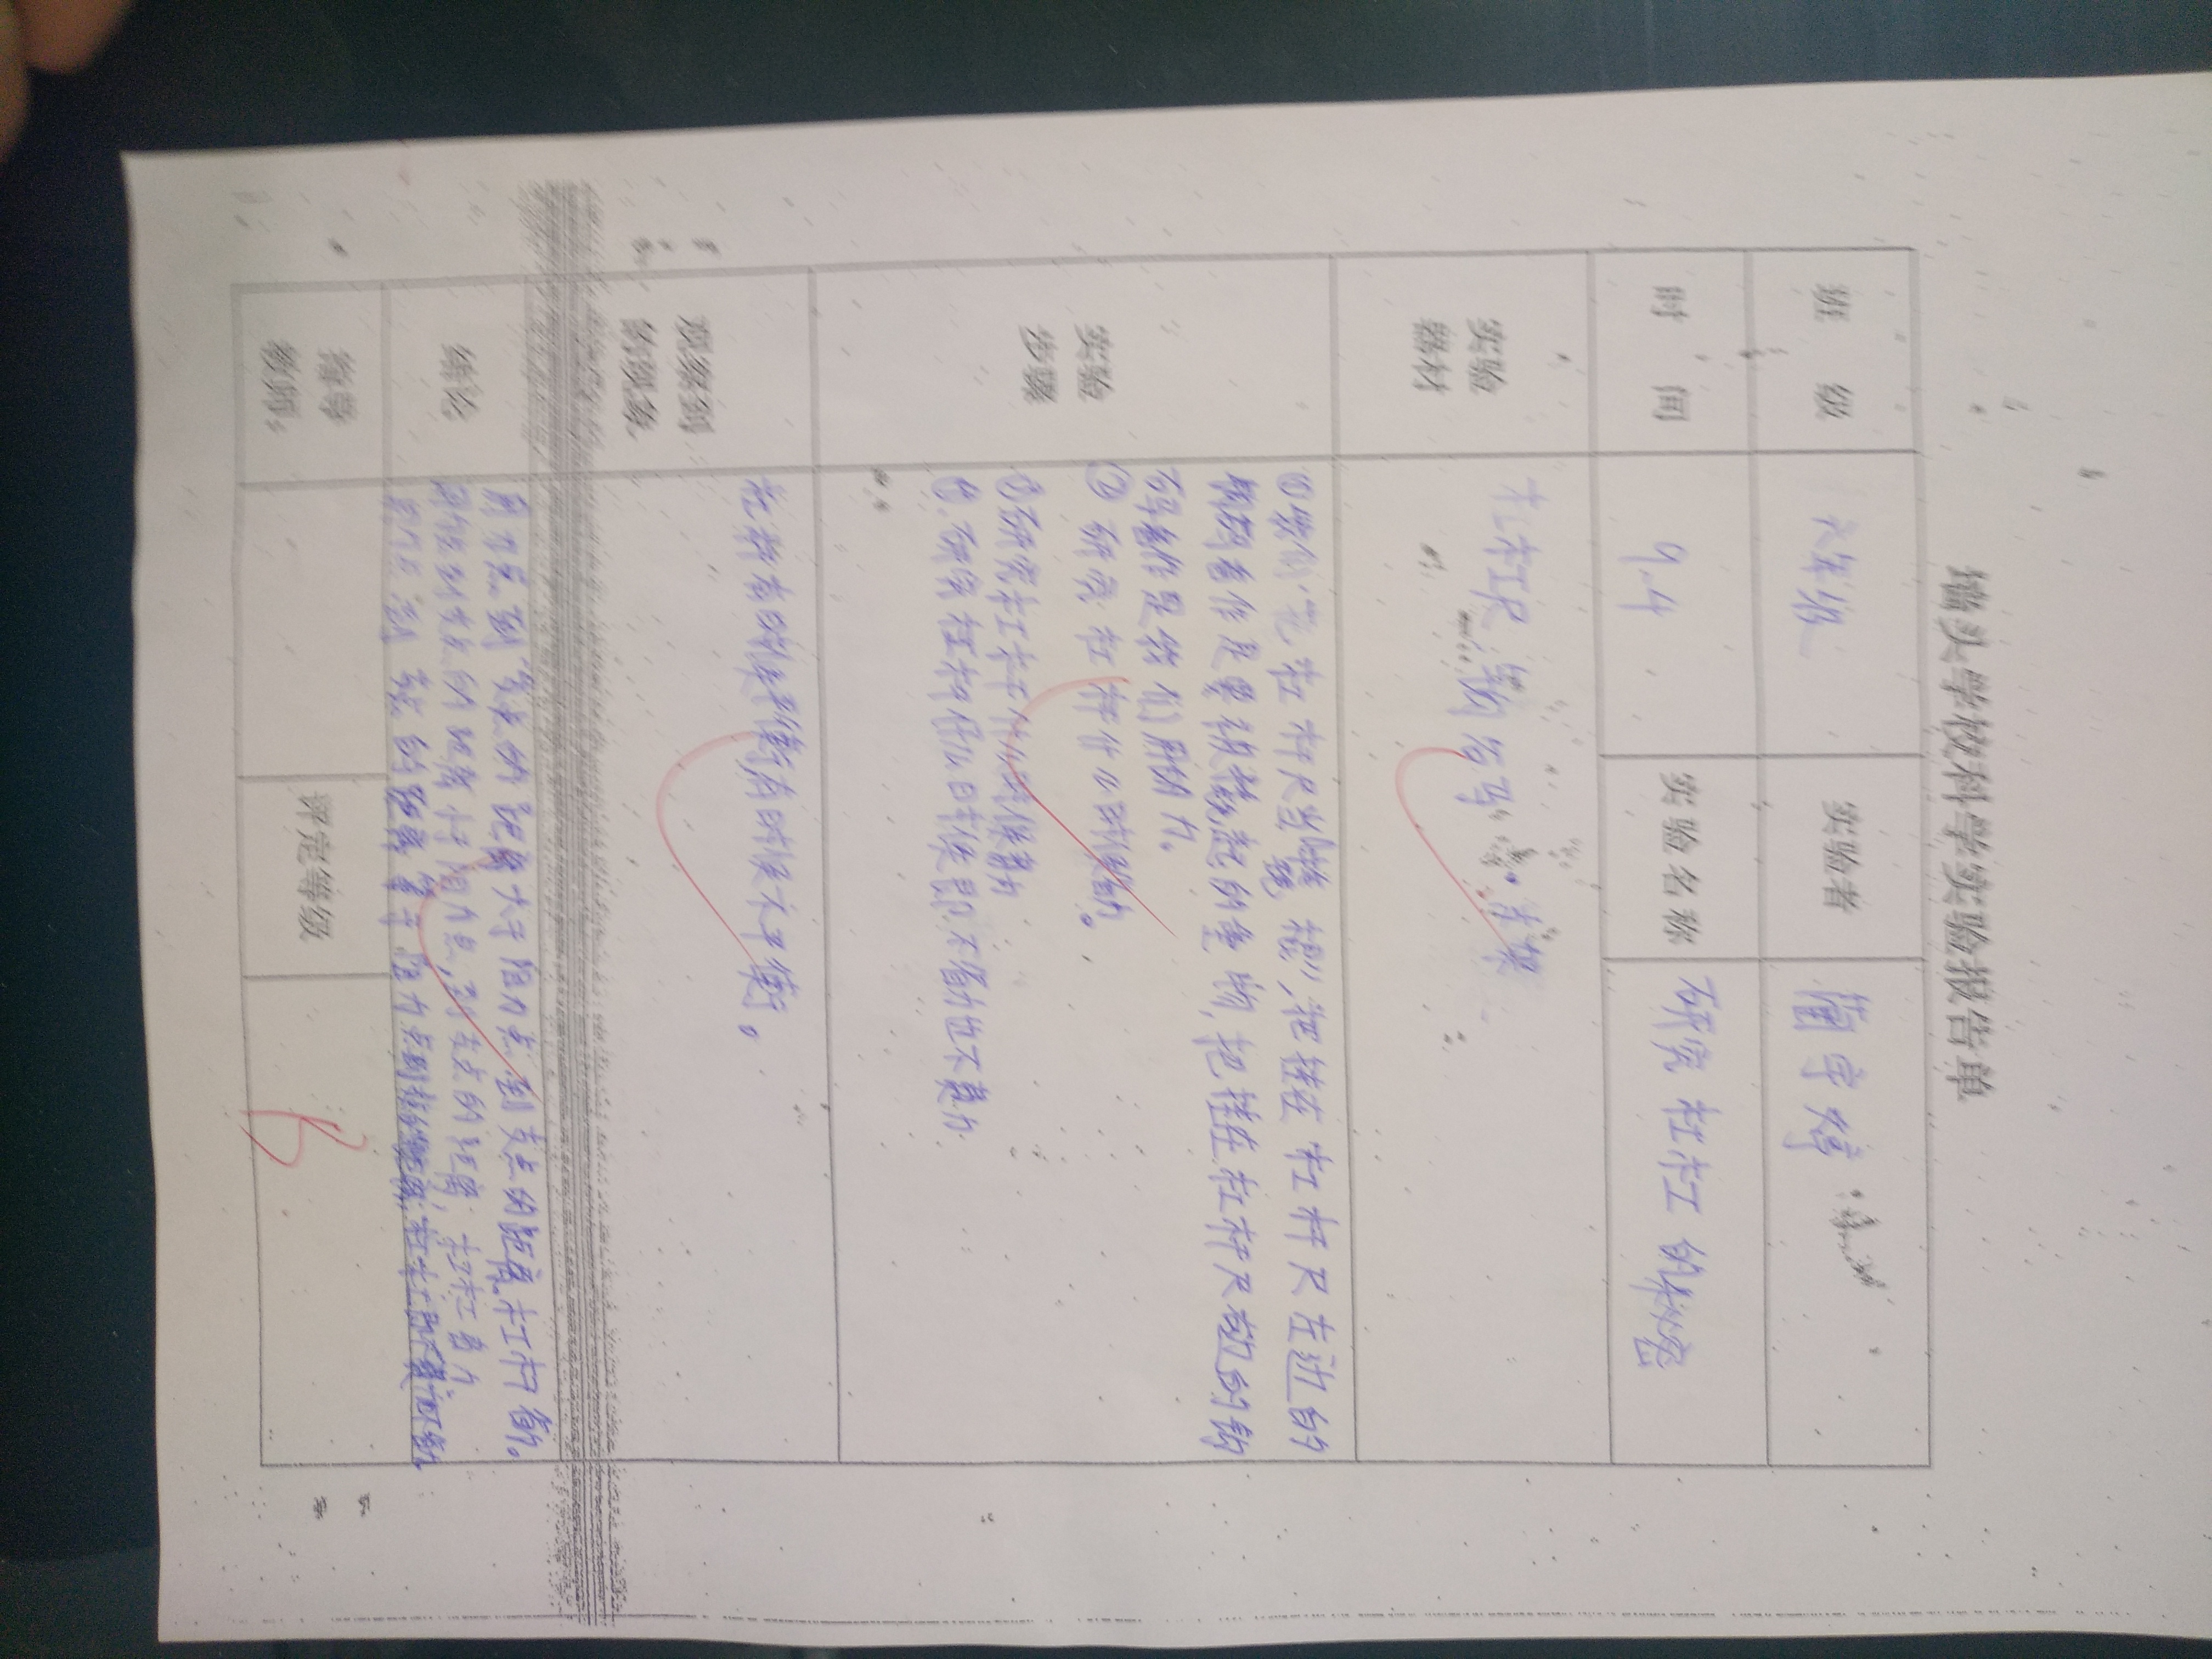 学校科学实验报告单
班 级
六年级
实验者
蔺字婷
时 间
9.4
实验名称
研究 杠杠 的秘密
实验
器材
杠杆尺 钩码 支架
实验
步骤
杠杆尺当 把挂在 杠杆尺左边的
钩码看作是要 起的重物, 把挂在杠杆尺右边的钩
码看作是我们用的力。
② 研究 杠杆什么时候省力。
③研究杠杆什么时候费力
④. 研究 杠杆什么时候即不省力也不费力
观察到
的现象
杠杆有时候平衡有时候不平衡。
结论
用力点到支点的距离大于阻力点到支点的距离,杠杆省力。
用力点到支点的距离小于阻力点,到支点的距离, 杠杠费力
用力点到支点的距离等于阻力点到支点的距离,
指导
教师。
评定等级
B